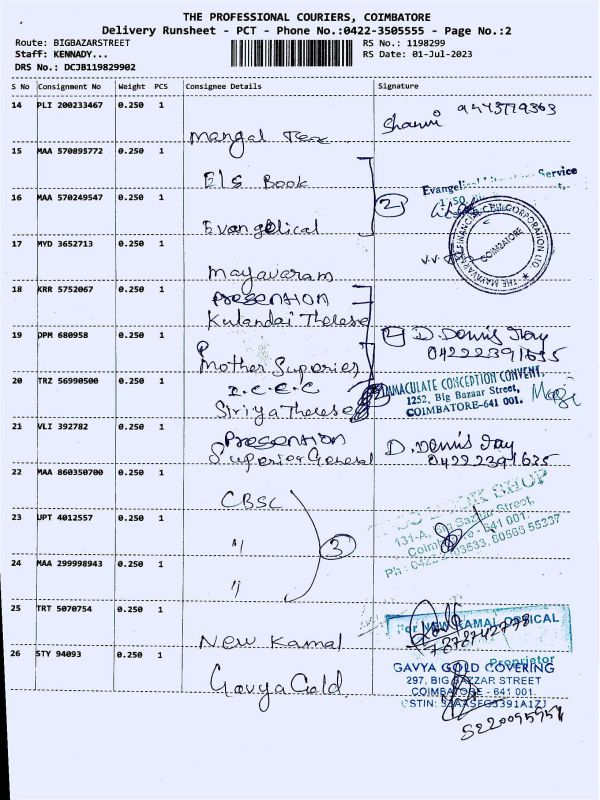 THE PROFESSIONAL COURIERS, COIMBATORE
Delivery Runsheet - PCT - Phone No.:0422-3505555 - Page No.:2
Route: BIGBAZARSTREET
RS No.: 1198299
Staff: KENNADY...
RS Date: 01-Jul-2023
DRS No.: DCJB119829902
S No Consignment No Weight PCS Consignee Details Signature
14 PLI 200233467 0.250 1
9443779363
Mangal Tex
15 MAA 570895772 0.250 1
ELS Book
Service
16 MAA 570249547 0.250 1
2
Evangelical
17 MYD 3652713 0.250 1
COIMBATORE
Mayavaram
18 KRR 5752067 0.250 1
Presention
Kulandai Therese
19 DPM 680958 0.250 1
D. Dennis Jray
04222391635
Mother Superier
I.C.E.C
20 TRZ 56990500 0.250 1
IMMACULATE CONCEPTION CONVENT,
1252, Big Bazaar Street,
COIMBATORE-641 001.
Siriya Therese
21 VLI 392782 0.250 1
Presention
Superier General
D. Dennis Jray
04222391635
22 MAA 860350700 0.250 1
CBSC
BOOK SHOP
131-A, Big Bazaar Street,
Coimbatore - 641 001.
23 UPT 4012557 0.250 1
"
3
24 MAA 299998943 0.250 1
"
25 TRT 5070754 0.250 1
For NEW KAMAL OPTICAL
7878742778
Proprietor
New Kamal
26 STY 94093 0.250 1
GAVYA GOLD COVERING
297, BIG BAZZAR STREET
COIMBATORE - 641 001.
Gavya Gold